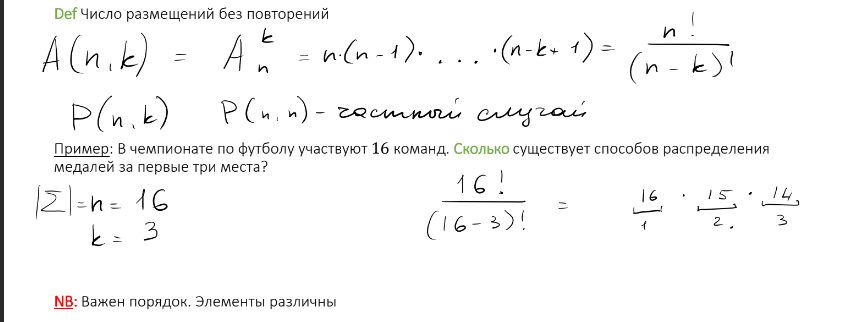 Def Число размещений без повторений
A(n,k) = A_n^k = n·(n-1)· ... ·(n-k+1) = n! / (n-k)!
P(n,k) P(n,n) - частный случай
Пример: В чемпионате по футболу участвуют 16 команд. Сколько существует способов распределения
медалей за первые три места?
|Σ| = n = 16 16! / (16-3)! = 16 · 15 · 14
1 2. 3
k = 3
NB: Важен порядок. Элементы различны